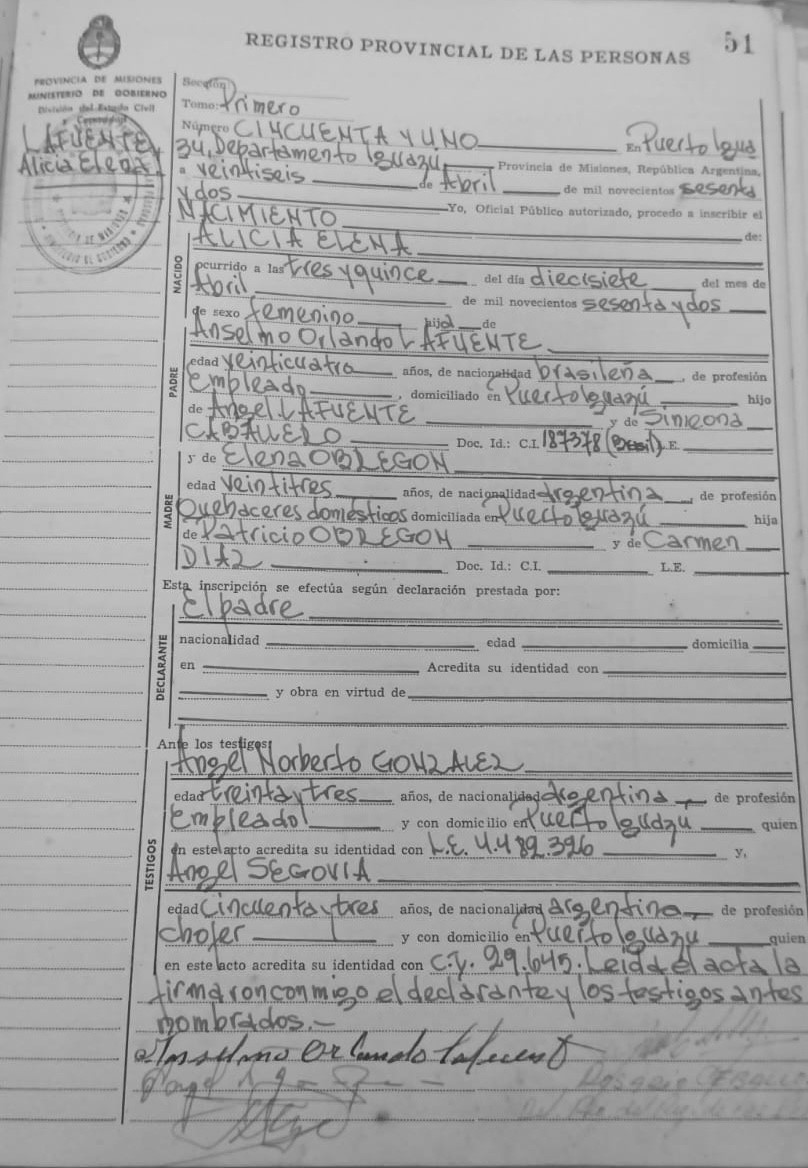 REGISTRO PROVINCIAL DE LAS PERSONAS
51
PROVINCIA DE MISIONES
MINISTERIO DE GOBIERNO
División del Estado Civil
LAFUENTE
Alicia Elena
Sección
Tomo: Primero
Número CINCUENTA Y UNO En Puerto Igua
zú, Departamento Iguazú Provincia de Misiones, República Argentina,
a veintiseis de Abril de mil novecientos sesenta
y dos Yo, Oficial Público autorizado, procedo a inscribir el
NACIMIENTO de:
ALICIA ELENA
NACIDO
ocurrido a las tres y quince del día diecisiete del mes de
Abril de mil novecientos sesenta y dos
de sexo femenino hija de
Anselmo Orlando LAFUENTE
PADRE
edad veinticuatro años, de nacionalidad brasileña, de profesión
empleado, domiciliado en Puerto Iguazú hijo
de Angel LAFUENTE y de Simeona
CABALLERO Doc. Id.: C.I. 187378 (Brasil) E.
y de Elena OBREGON
MADRE
edad veintitres años, de nacionalidad argentina, de profesión
Quehaceres domésticos domiciliada en Puerto Iguazú hija
de Patricio OBREGON y de Carmen
DIAZ Doc. Id.: C.I. L.E.
Esta inscripción se efectúa según declaración prestada por:
El padre
DECLARANTE
nacionalidad edad domicilia
en Acredita su identidad con
y obra en virtud de
Ante los testigos:
Angel Norberto GONZALEZ
TESTIGOS
edad treinta y tres años, de nacionalidad argentina, de profesión
Empleado y con domicilio en Puerto Iguazú quien
en este acto acredita su identidad con L.E. 4.489.396 y,
Angel SEGOVIA
edad Cincuenta y tres años, de nacionalidad argentina, de profesión
chofer y con domicilio en Puerto Iguazu quien
en este acto acredita su identidad con C.y. 29.645. Leida el acta la
firmaron conmigo el declarante y los testigos antes
nombrados.-
Anselmo Orlando Lafuente